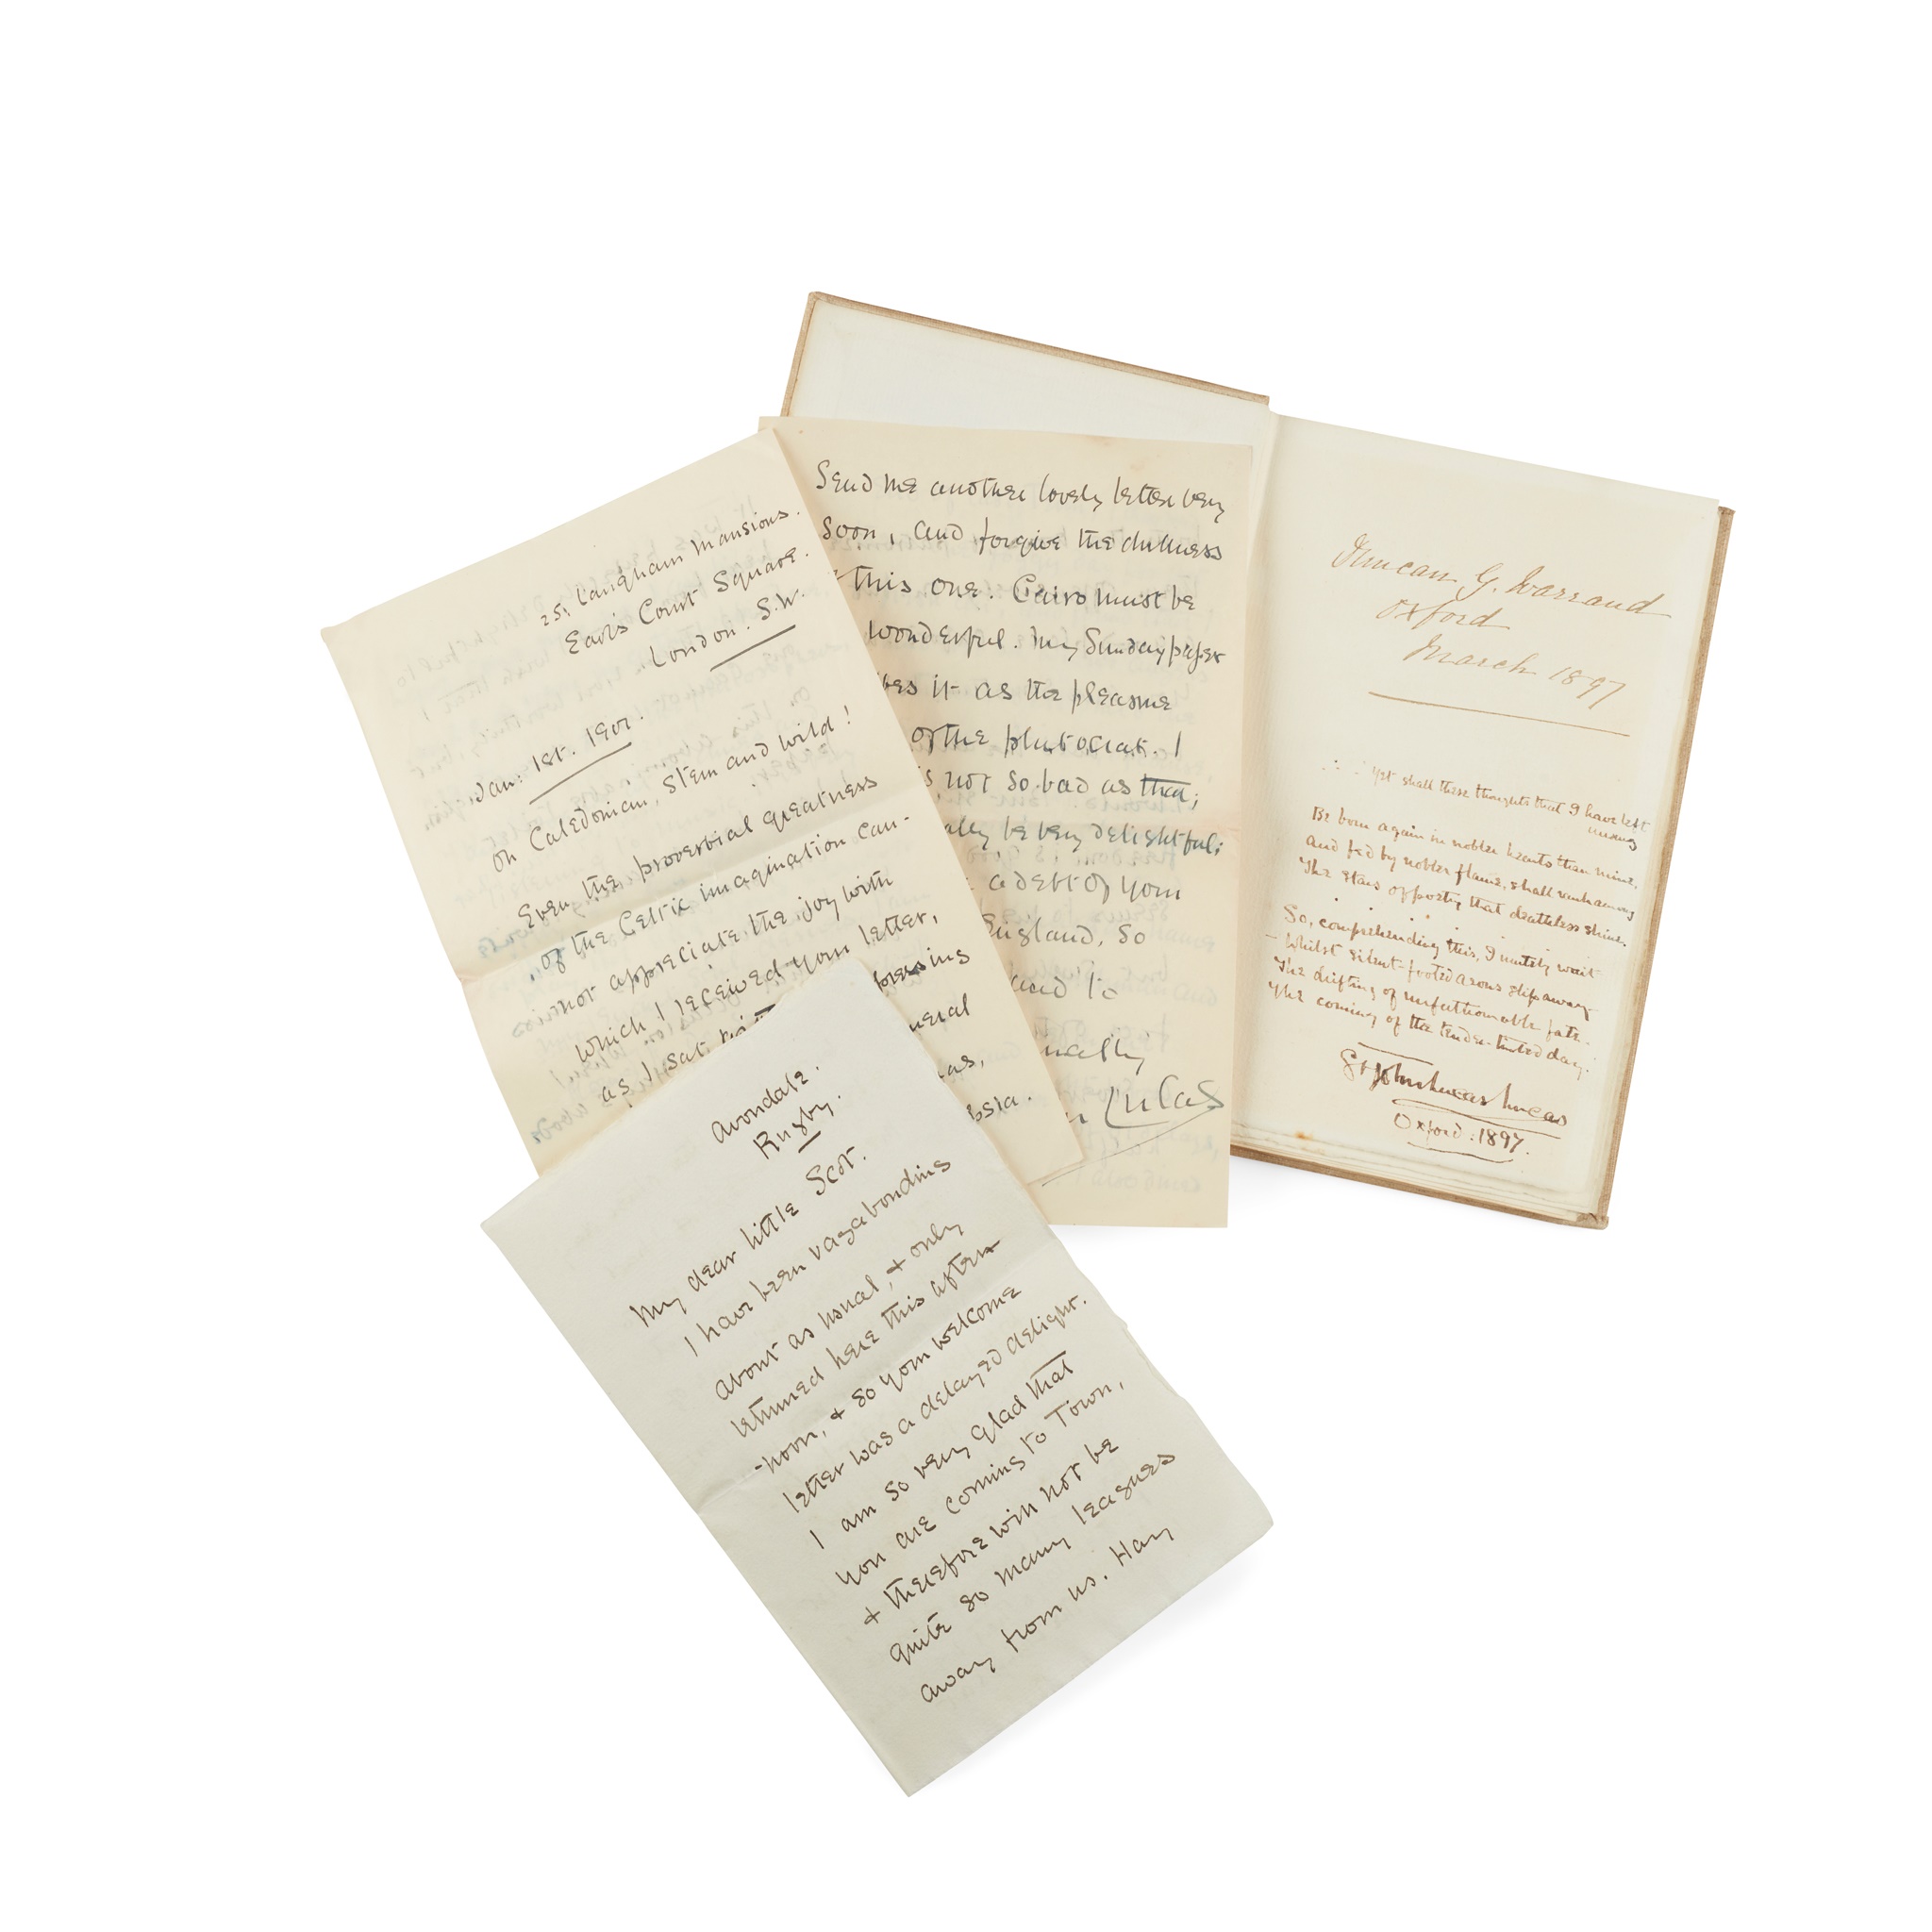 25, Langham Mansions.
Earl's Court Square.
London. S.W.
Jan: 1st. 1901.
Oh Caledonian, stern and wild!
Even the proverbial greatness
of the Celtic imagination can-
not appreciate the joy with
which I received your letter,
as I sat
neral
as,
ssia.
Send me another lovely letter very
soon, and forgive the dulness
this one. Cairo must be
wonderful. My Sunday paper
bes it as the pleasure
of the plutocrat. I
s not so bad as that;
ally be very delightful;
a debt of your
England, so
and to
nally
n Lucas
Duncan G. Warrand
Oxford
March 1897
Yet shall these thoughts that I have left
unsung
Be born again in nobler hearts than mine,
And fed by nobler flame, shall
The stars opposing that deathless shine.
So, comprehending this, I mutely wait
– Whilst silent-footed aeons slip away –
The drifting of unfathomable fate.
The coming of the tender-tinted day.
St John Lucas Lucas
Oxford: 1897.
Avondale.
Rugby.
My dear little Scot.
I have been vagabonding
about as usual, & only
returned here this after-
-noon, & so your welcome
letter was a delayed delight.
I am so very glad that
you are coming to Town,
& therefore will not be
quite so many leagues
away from us. Hay